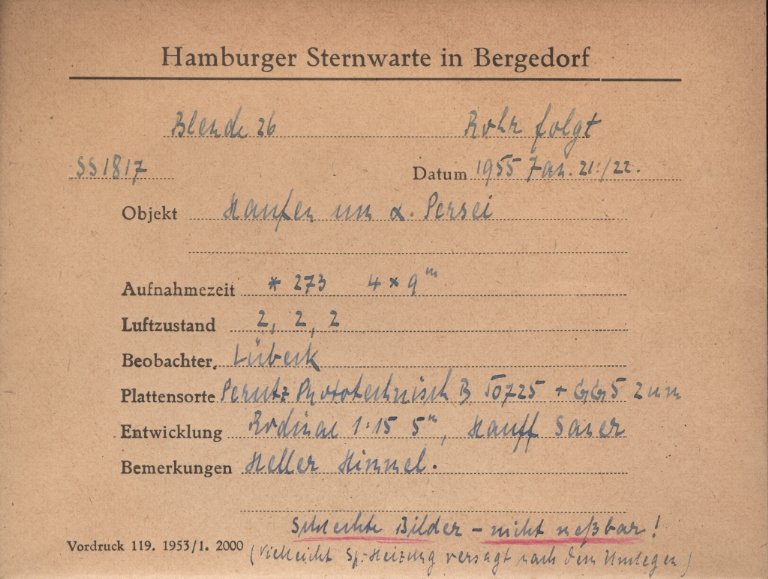 Hamburger Sternwarte in Bergedorf
Blende 26 Rohr folgt
SS1817 Datum 1955 Jan. 21./22.
Objekt Haufen um α. Persei
Aufnahmezeit * 273 4 × 9ᵐ
Luftzustand 2, 2, 2
Beobachter Lübeck
Plattensorte Perutz Phototechnisch B + GG5 2mm
Entwicklung Rodinal 1:15 5ᵐ, Hauff Sauer
Bemerkungen Heller Himmel.
Schlechte Bilder – nicht meßbar!
Vordruck 119. 1953/1. 2000 (Vielleicht Sp.-Heizung versagt nach dem Umlegen)